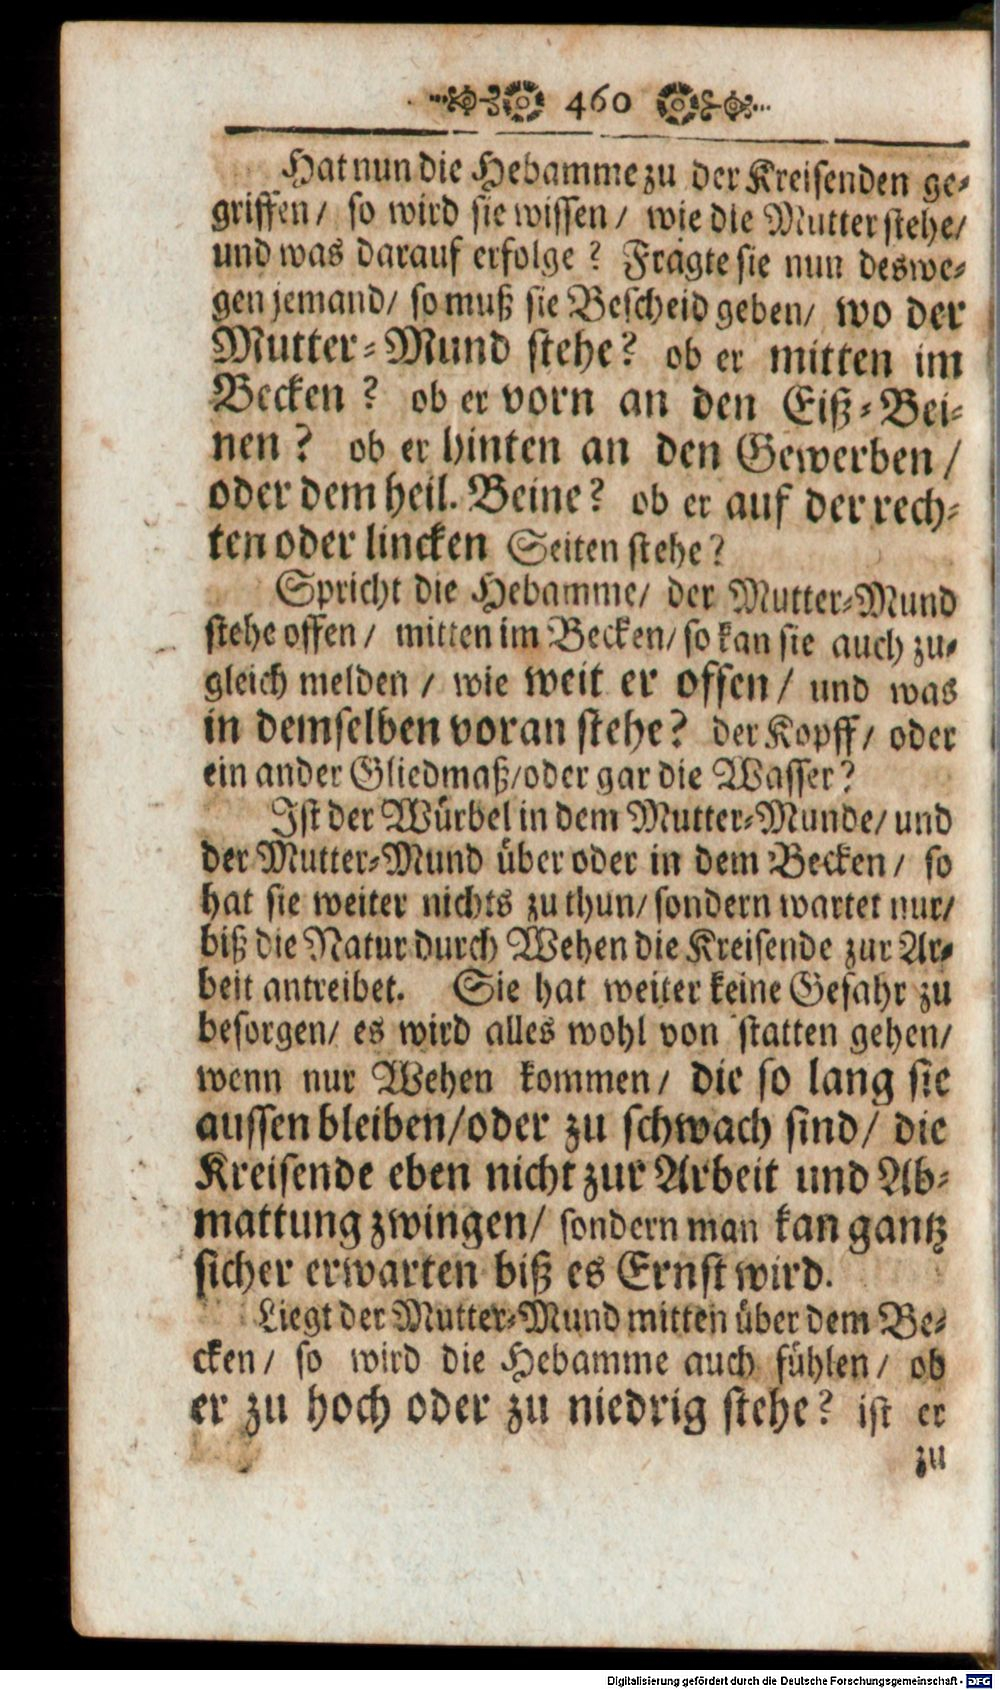 460
Hat nun die Hebamme zu der Kreisenden ge-
griffen/ so wird sie wissen/ wie die Mutter stehe/
und was darauf erfolge? Fragte sie nun deswe-
gen jemand/ so muß sie Bescheid geben/ wo der
Mutter-Mund stehe? ob er mitten im
Becken? ob er vorn an den Eiß-Bei-
nen? ob er hinten an den Gewerben/
oder dem heil. Beine? ob er auf der rech-
ten oder lincken Seiten stehe?
Spricht die Hebamme/ der Mutter-Mund
stehe offen/ mitten im Becken/ so kan sie auch zu-
gleich melden/ wie weit er offen/ und was
in demselben voran stehe? der Kopff/ oder
ein ander Gliedmaß/ oder gar die Wasser?
Ist der Würbel in dem Mutter-Munde/ und
der Mutter-Mund über oder in dem Becken/ so
hat sie weiter nichts zu thun/ sondern wartet nur/
biß die Natur durch Wehen die Kreisende zur Ar-
beit antreibet. Sie hat weiter keine Gefahr zu
besorgen/ es wird alles wohl von statten gehen/
wenn nur Wehen kommen/ die so lang sie
aussen bleiben/ oder zu schwach sind/ die
Kreisende eben nicht zur Arbeit und Ab-
mattung zwingen/ sondern man kan gantz
sicher erwarten biß es Ernst wird.
Liegt der Mutter-Mund mitten über dem Be-
cken/ so wird die Hebamme auch fühlen/ ob
er zu hoch oder zu niedrig stehe? ist er
zu
Digitalisierung gefördert durch die Deutsche Forschungsgemeinschaft - DFG